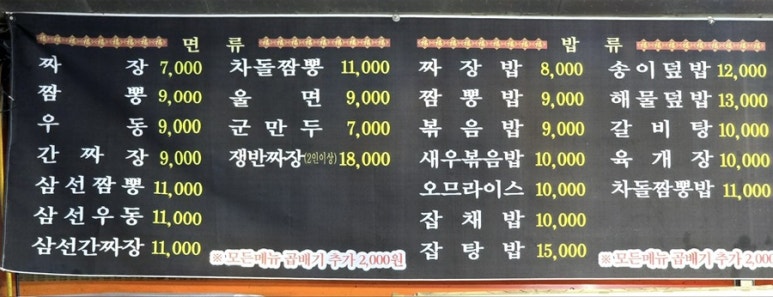 면 류
짜장 7,000
짬뽕 9,000
우동 9,000
간짜장 9,000
삼선짬뽕 11,000
삼선우동 11,000
삼선간짜장 11,000
차돌짬뽕 11,000
울면 9,000
군만두 7,000
쟁반짜장(2인이상) 18,000
※ 모든메뉴 곱배기 추가 2,000원
밥 류
짜장밥 8,000
짬뽕밥 9,000
볶음밥 9,000
새우볶음밥 10,000
오므라이스 10,000
잡채밥 10,000
잡탕밥 15,000
송이덮밥 12,000
해물덮밥 13,000
갈비탕 10,000
육개장 10,000
차돌짬뽕밥 11,000
※ 모든메뉴 곱배기 추가 2,000